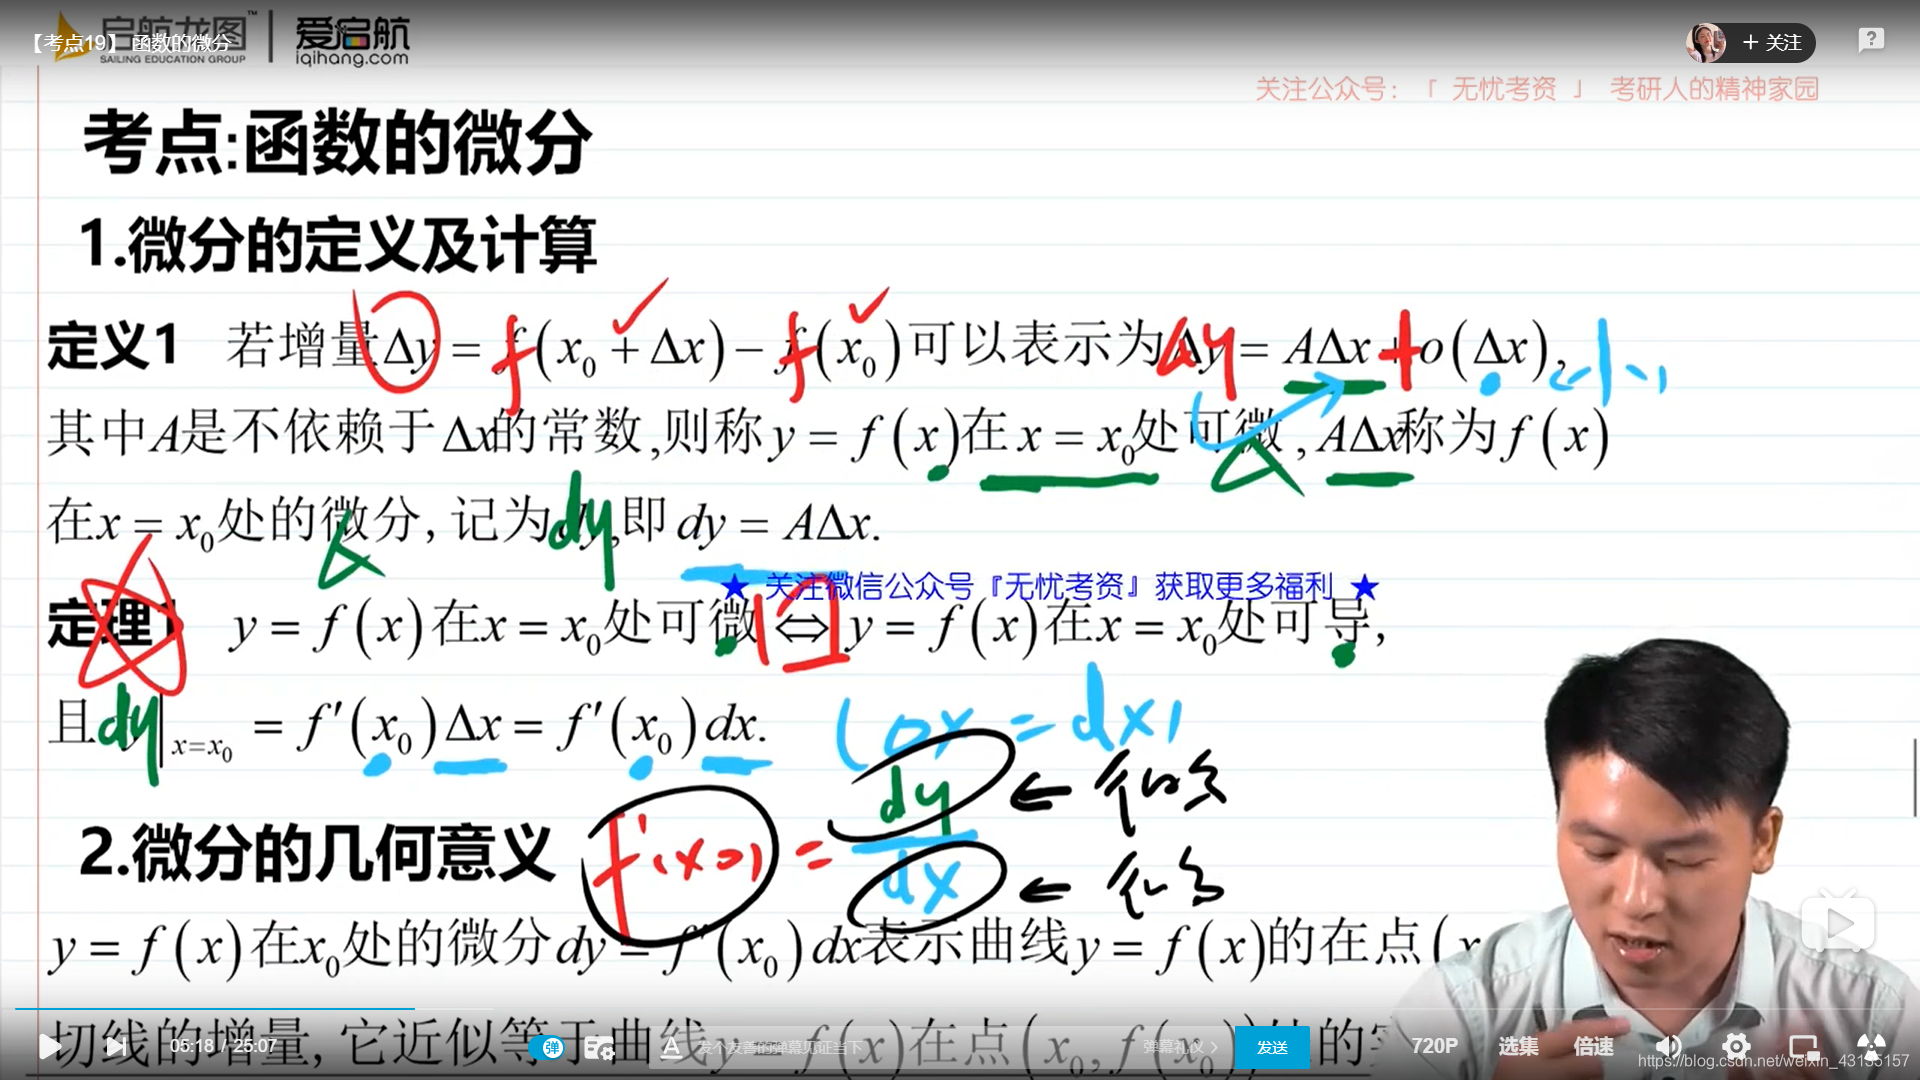 启航龙图™ 爱启航
SAILING EDUCATION GROUP iqihang.com
【考点19】 函数的微分
+ 关注
?
关注公众号：「 无忧考资 」 考研人的精神家园
考点:函数的微分
1.微分的定义及计算
定义1 若增量Δy = f(x₀ + Δx) − f(x₀)可以表示为Δy = AΔx + o(Δx),
其中A是不依赖于Δx的常数,则称y = f(x)在x = x₀处可微, AΔx称为f(x)
在x = x₀处的微分, 记为dy,即dy = AΔx.
★ 关注微信公众号『无忧考资』获取更多福利 ★
定理1 y = f(x)在x = x₀处可微 ⇔ y = f(x)在x = x₀处可导,
且dy|x=x₀ = f′(x₀)Δx = f′(x₀)dx.
(Δx = dx)
f′(x₀) = dy/dx
2.微分的几何意义
y = f(x)在x₀处的微分dy = f′(x₀)dx表示曲线y = f(x)的在点(x
切线的增量, 它近似等于曲线y = f(x)在点(x₀, f(x₀))处的
05:18 / 25:07
弹
发个友善的弹幕见证当下
弹幕礼仪 >
发送
720P
选集
倍速
https://blog.csdn.net/weixin_43135157